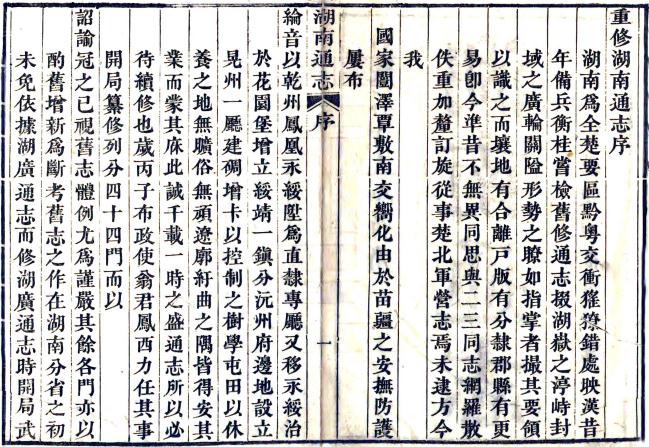 重修湖南通志序
湖南爲全楚要區黔粤交衝猺獠錯處映漢昔
年備兵衡桂嘗檢舊修通志掇湖嶽之渟峙封
域之廣輪關隘形勢之瞭如指掌者撮其要領
以識之而壤地有合離戸版有分隸郡縣有更
易卽今準昔不無異同思與二三同志網羅散
佚重加釐訂旋從事楚北軍營志焉未逮方今
我
國家闓澤覃敷南交嚮化由於苗疆之安撫防護
屢布
湖南通志 序 一
綸音以乾州鳳凰永綏陞爲直隸專廳又移永綏治
於花園堡增立綏靖一鎭分沅州府邊地設立
晃州一廳建碉增卡以控制之樹學屯田以休
養之地無曠俗無頑遼廓紆曲之隅皆得安其
業而蒙其庥此誠千載一時之盛通志所以必
待續修也歲丙子布政使翁君鳳西力任其事
開局纂修列分四十四門而以
詔諭冠之已視舊志體例尤爲謹嚴其餘各門亦以
酌舊增新爲斷考舊志之作在湖南分省之初
未免依據湖廣通志而修湖廣通志時開局武